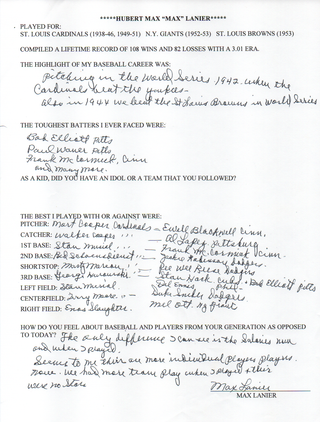 *****HUBERT MAX “MAX” LANIER*****
PLAYED FOR:
ST. LOUIS CARDINALS (1938-46, 1949-51) N.Y. GIANTS (1952-53) ST. LOUIS BROWNS (1953)
COMPILED A LIFETIME RECORD OF 108 WINS AND 82 LOSSES WITH A 3.01 ERA.
THE HIGHLIGHT OF MY BASEBALL CAREER WAS:
Pitching in the World Series 1942 when the
Cardinals beat the yankees
also in 1944 we beat the St Louis Browns in World Series
THE TOUGHEST BATTERS I EVER FACED WERE:
Bob Elliott Pitts
Paul Waner Pitts
Frank McCormick, Cinn
and many more.
AS A KID, DID YOU HAVE AN IDOL OR A TEAM THAT YOU FOLLOWED?
THE BEST I PLAYED WITH OR AGAINST WERE:
PITCHER: Mort Cooper Cardinals - Ewell Blackwell Cinn.
CATCHER: Walker Cooper - Al Lopez Pittsburg
1ST BASE: Stan Musial - Frank McCormick Cinn.
2ND BASE: Red Schoendienst - Jackie Robinson Dodgers
SHORTSTOP: Marty Marion - Pee Wee Reese Dodgers
3RD BASE: George Kurowski - Stan Hack Cubs + Bob Elliott Pitts
LEFT FIELD: Stan Musial - Del Ennis Phil
CENTERFIELD: Terry Moore - Duke Snider Dodgers
RIGHT FIELD: Enos Slaughter Mel Ott Ny Giants
HOW DO YOU FEEL ABOUT BASEBALL AND PLAYERS FROM YOUR GENERATION AS OPPOSED
TO TODAY? The only difference I can see is the Salaries now
and when I played.
Seems to me their are more individual players players
now. We had more team play when I played & their
were no
Max Lanier
MAX LANIER